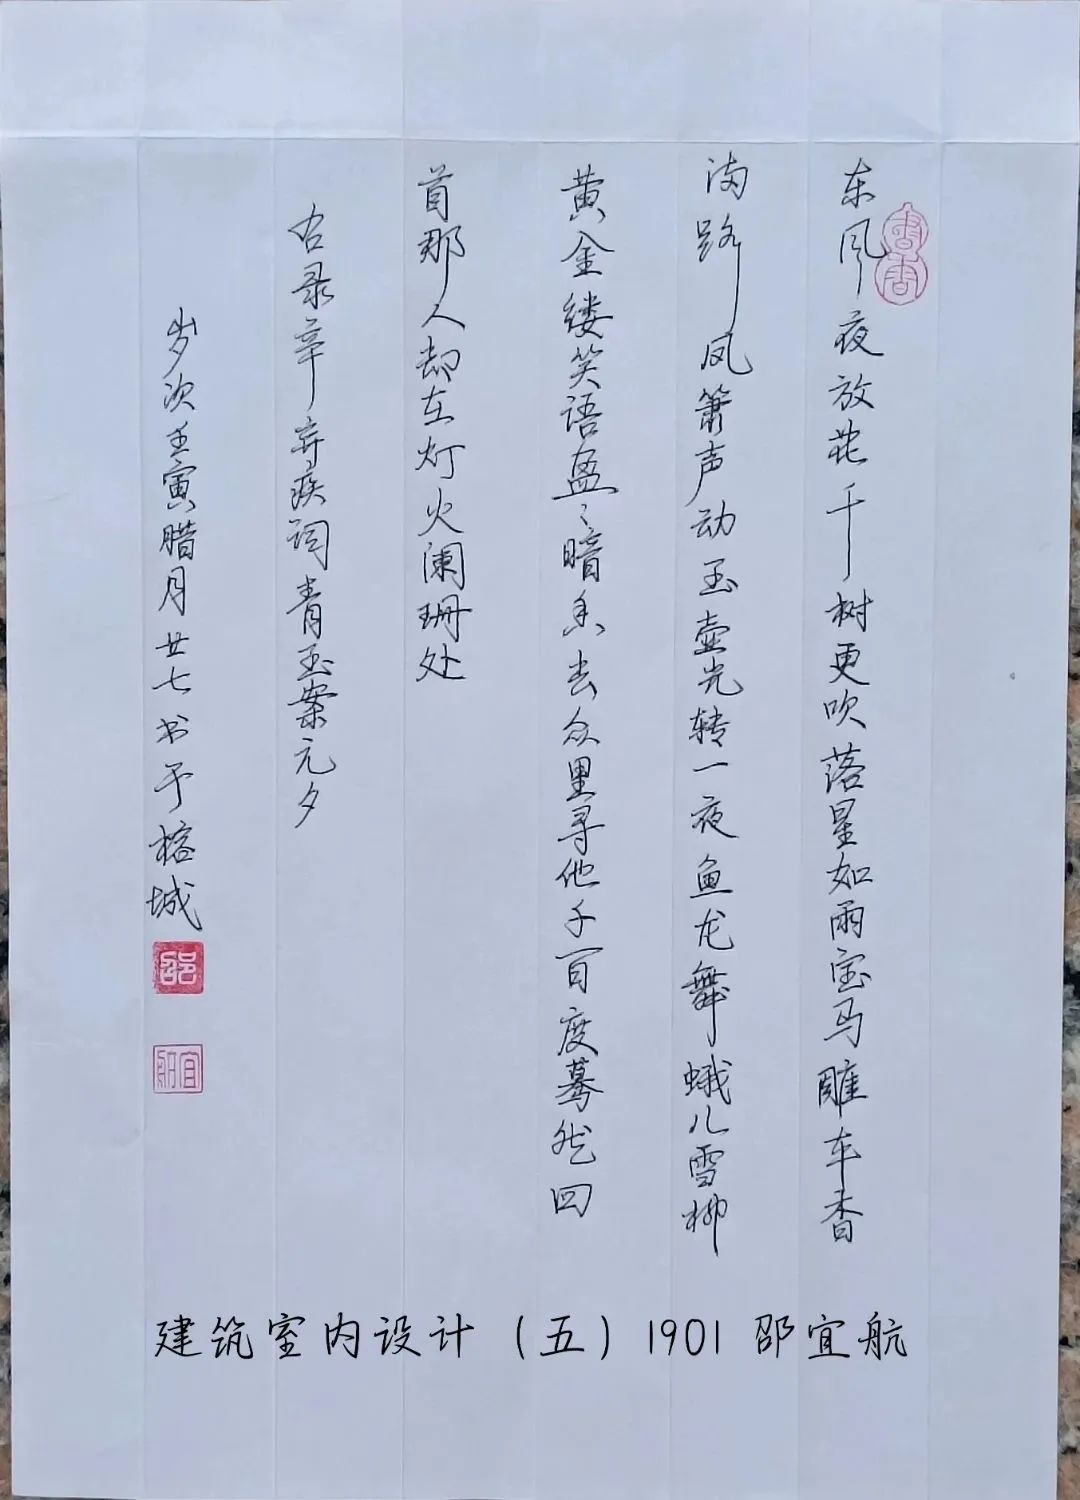 东风夜放花千树更吹落星如雨宝马雕车香
满路凤箫声动玉壶光转一夜鱼龙舞蛾儿雪柳
黄金缕笑语盈〻暗香去众里寻他千百度蓦然回
首那人却在灯火阑珊处
右录辛弃疾词青玉案元夕
岁次壬寅腊月廿七书于榕城
书香
邵
宜航
建筑室内设计（五）1901 邵宜航